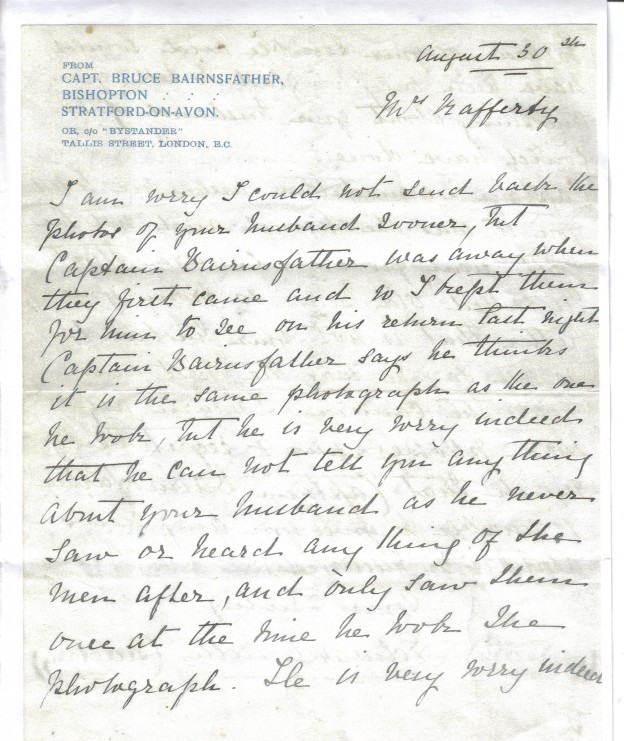 FROM
CAPT. BRUCE BAIRNSFATHER,
BISHOPTON
STRATFORD-ON-AVON.
OR, c/o "BYSTANDER"
TALLIS STREET, LONDON, E.C.
August 30th
Mrs Rafferty
I am sorry I could not send back the
photos of your husband sooner, but
Captain Bairnsfather was away when
they first came and so I kept them
for him to see on his return last night
Captain Bairnsfather says he thinks
it is the same photograph as the one
he took, but he is very sorry indeed
that he can not tell you anything
about your husband as he never
saw or heard any thing of the
men after, and only saw them
once at the time he took the
photograph. He is very sorry indeed